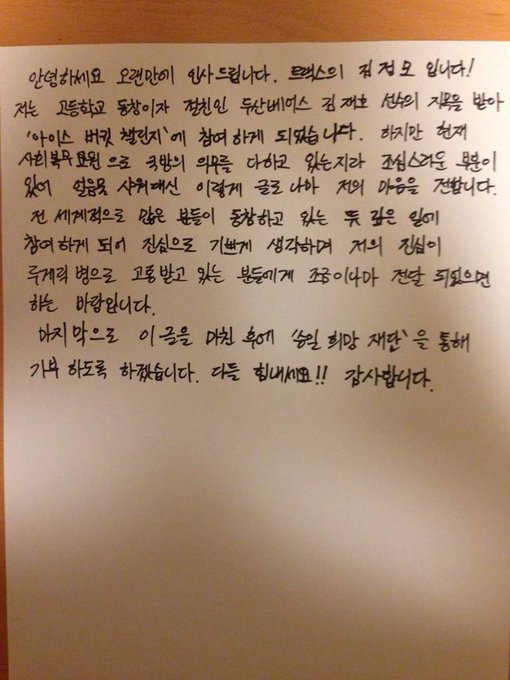 안녕하세요 오랜만에 인사드립니다. 트랙스의 김정모 입니다!
저는 고등학교 동창이자 절친인 두산베어스 김재호 선수의 지목을 받아
'아이스 버킷 챌린지'에 참여하게 되었습니다. 하지만 현재
사회복무요원으로 국방의 의무를 다하고 있는지라 조심스러운 부분이
있어 얼음물 샤워대신 이렇게 글로나마 저의 마음을 전합니다.
전 세계적으로 많은 분들이 동참하고 있는 뜻 깊은 일에
참여하게 되어 진심으로 기쁘게 생각하며 저의 진심이
루게릭 병으로 고통받고 있는 분들에게 조금이나마 전달 되었으면
하는 바람입니다.
마지막으로 이 글을 마친 후에 '승일 희망 재단'을 통해
기부 하도록 하겠습니다. 다들 힘내세요!! 감사합니다.